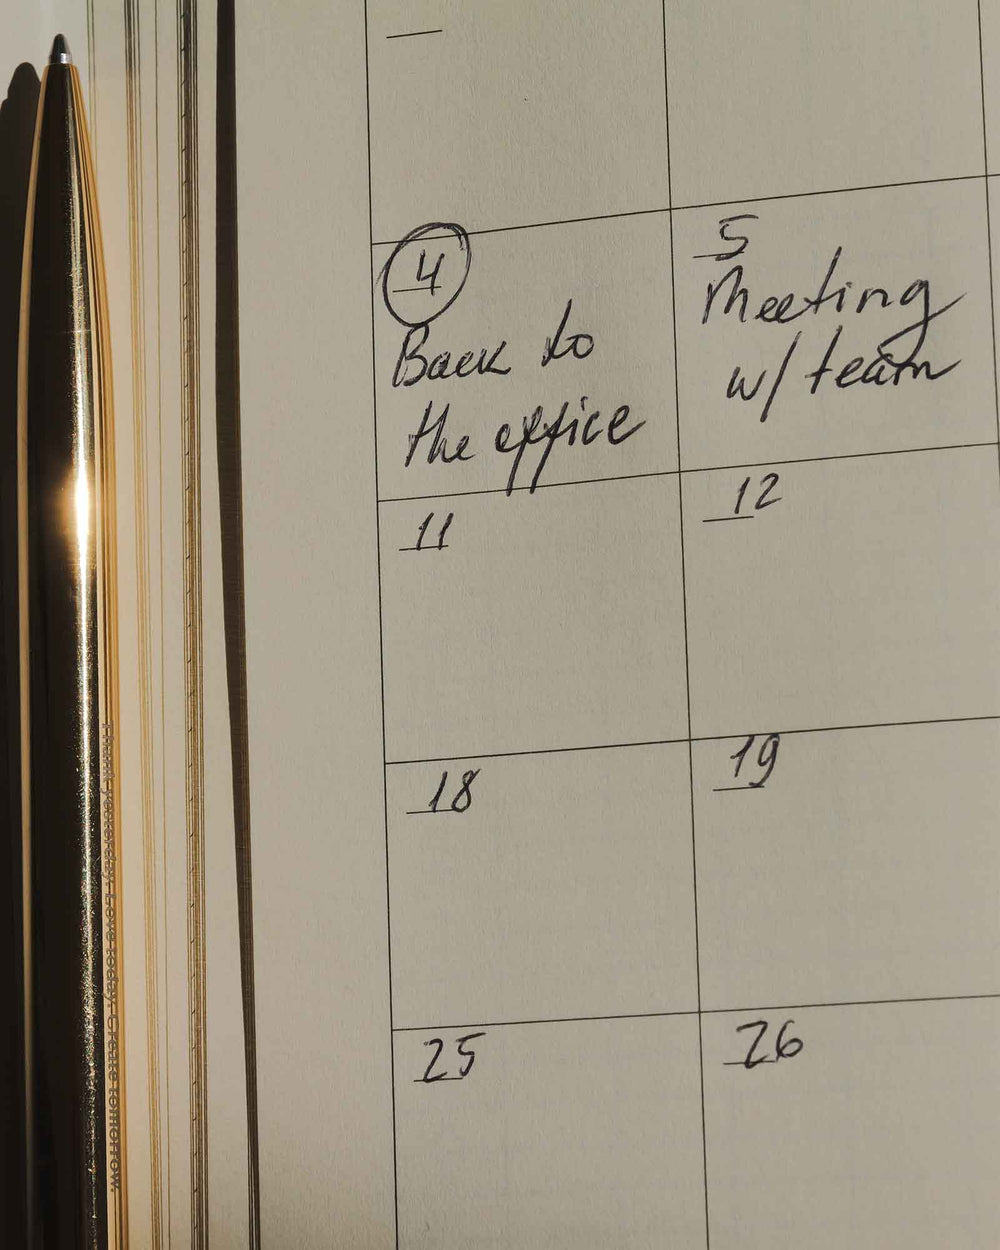 4
Back to
the office
5
Meeting
w/ team
11
12
18
19
25
26
Thank yesterday. Love today. Create tomorrow.